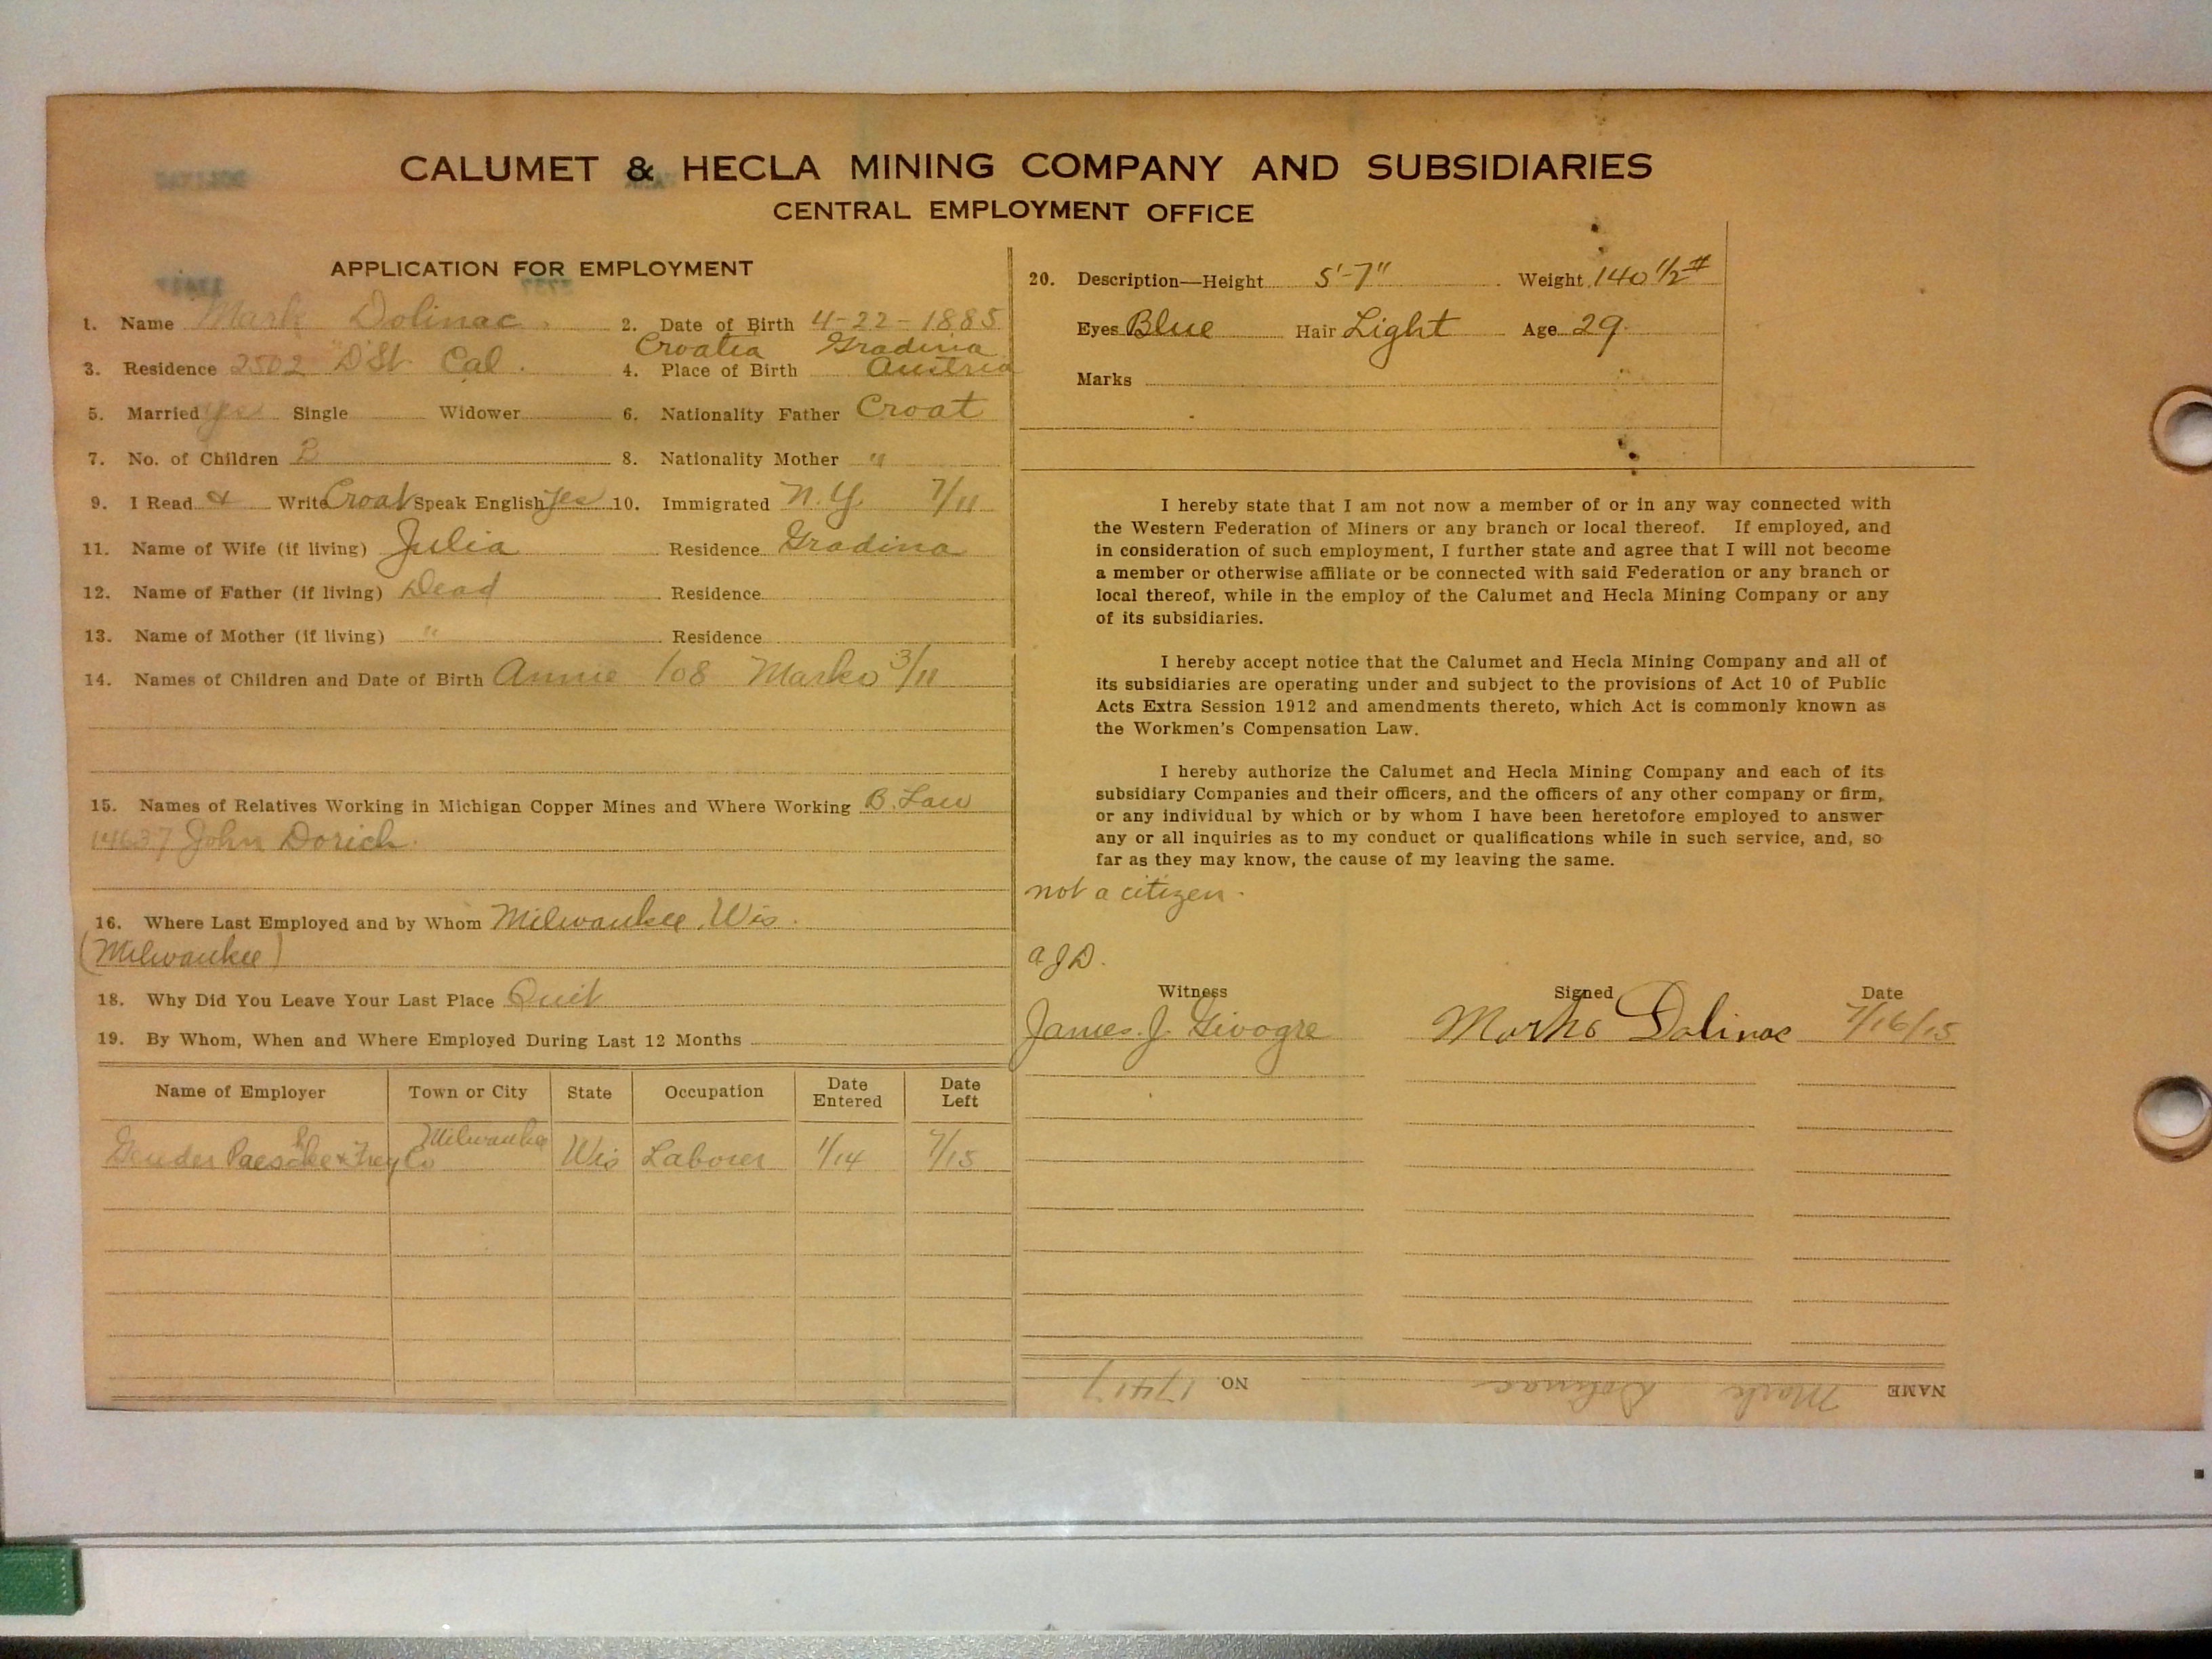 CALUMET & HECLA MINING COMPANY AND SUBSIDIARIES
CENTRAL EMPLOYMENT OFFICE
APPLICATION FOR EMPLOYMENT
1. Name Mark Dolinac. 2. Date of Birth 4-22-1885
Croatia Gradina
3. Residence 2502 D St Cal. 4. Place of Birth Austria
5. Married yes Single Widower 6. Nationality Father Croat
7. No. of Children 2 8. Nationality Mother "
9. I Read & Write Croat Speak English yes 10. Immigrated N.Y. 7/11
11. Name of Wife (if living) Julia Residence Gradina
12. Name of Father (if living) Dead Residence
13. Name of Mother (if living) " Residence
14. Names of Children and Date of Birth Annie /08 Marko 3/11
15. Names of Relatives Working in Michigan Copper Mines and Where Working B. Law
14637 John Dorich.
16. Where Last Employed and by Whom Milwaukee, Wis.
(Milwaukee)
18. Why Did You Leave Your Last Place Quit
19. By Whom, When and Where Employed During Last 12 Months
Name of Employer Town or City State Occupation Date Entered Date Left
Geuder Paeschke & Frey Co Milwaukee Wis Laborer 1/14 7/15
20. Description—Height 5'-7" Weight 140 1/2#
Eyes Blue Hair Light Age 29
Marks
I hereby state that I am not now a member of or in any way connected with
the Western Federation of Miners or any branch or local thereof. If employed, and
in consideration of such employment, I further state and agree that I will not become
a member or otherwise affiliate or be connected with said Federation or any branch or
local thereof, while in the employ of the Calumet and Hecla Mining Company or any
of its subsidiaries.
I hereby accept notice that the Calumet and Hecla Mining Company and all of
its subsidiaries are operating under and subject to the provisions of Act 10 of Public
Acts Extra Session 1912 and amendments thereto, which Act is commonly known as
the Workmen's Compensation Law.
I hereby authorize the Calumet and Hecla Mining Company and each of its
subsidiary Companies and their officers, and the officers of any other company or firm,
or any individual by which or by whom I have been heretofore employed to answer
any or all inquiries as to my conduct or qualifications while in such service, and, so
far as they may know, the cause of my leaving the same.
not a citizen.
a J D.
Witness Signed Date
James J. Givogre Marko Dolinac 7/16/15
NAME Mark Dolinac NO. 17417